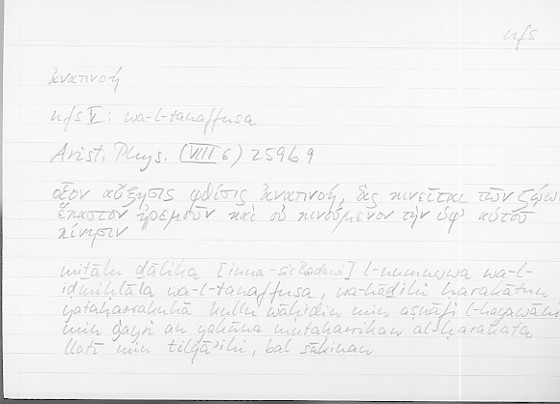 nfs
ἀναπνοή
nfs V: wa-l-tanaffusa
Arist. Phys. (VIII 6) 259b9
οἷον αὔξησις φθίσις ἀναπνοή, ἃς κινεῖται τῶν ζῴων
ἕκαστον ἠρεμοῦν καὶ οὐ κινούμενον τὴν ὑφ' αὑτοῦ
κίνησιν
mitālu dālika [inna-] l-numuwwa wa-l-
iḍmiḥlāla wa-l-tanaffusa, wa-hādihi ḥarakātun
yataḥarrakuhā kullu wāḥidin min aṣnāfi l-ḥayawāni
min ġayri an yakūna mutaḥarrikan al-ḥarakata
llatī min tilqā'ihi, bal sākinan